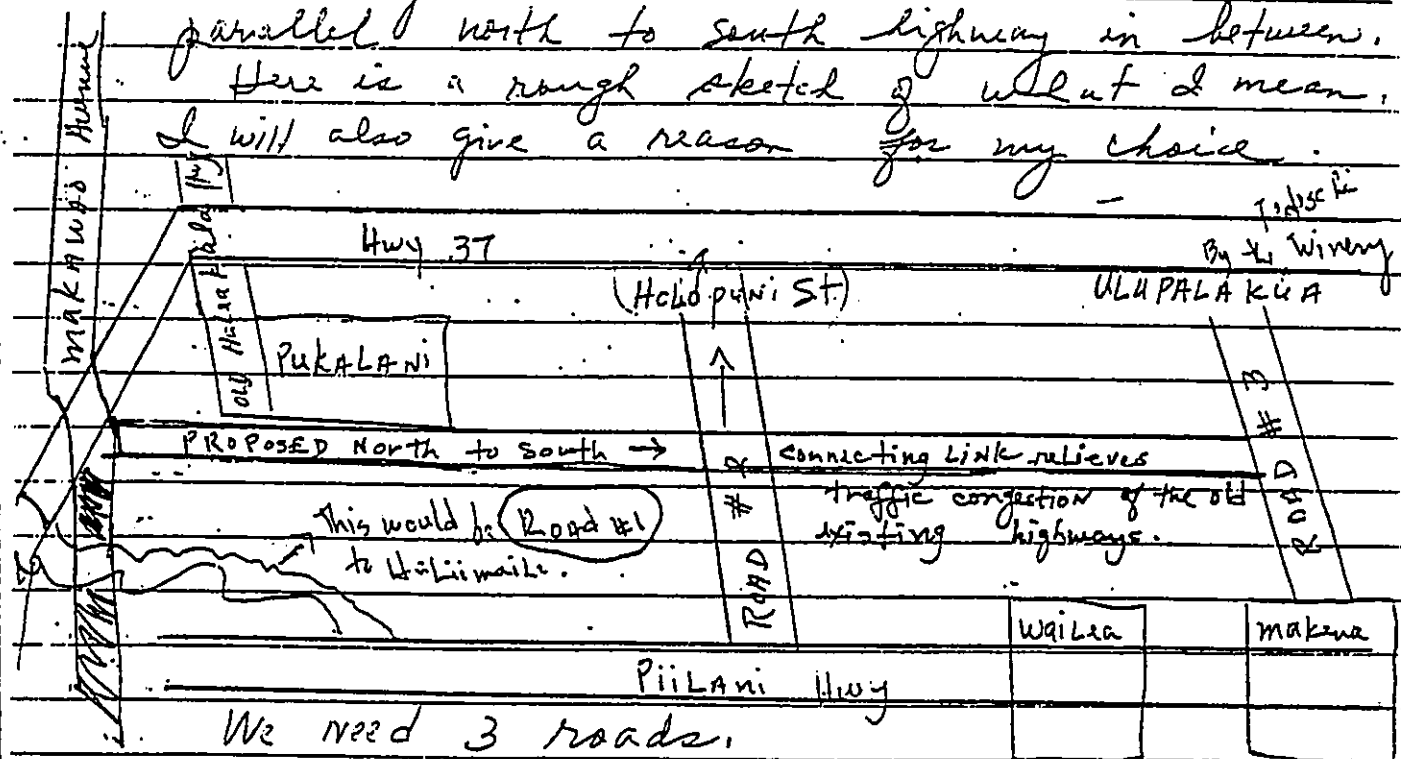 parallel north to south highway in between.
Here is a rough sketch of what I mean.
I will also give a reason for my choice.
makawao Avenue
Hwy 37
By the Winery
(Haliopuni St)
ULUPALAKUA
OLD Haleakala Hwy
PUKALANI
PROPOSED North to South →
connecting Link relieves
traffic congestion of the old
existing highways.
This would be Road #1
to Haliimaile.
ROAD # 2
ROAD # 3
WaiLea
makena
PiiLAni Hwy
We need 3 roads.